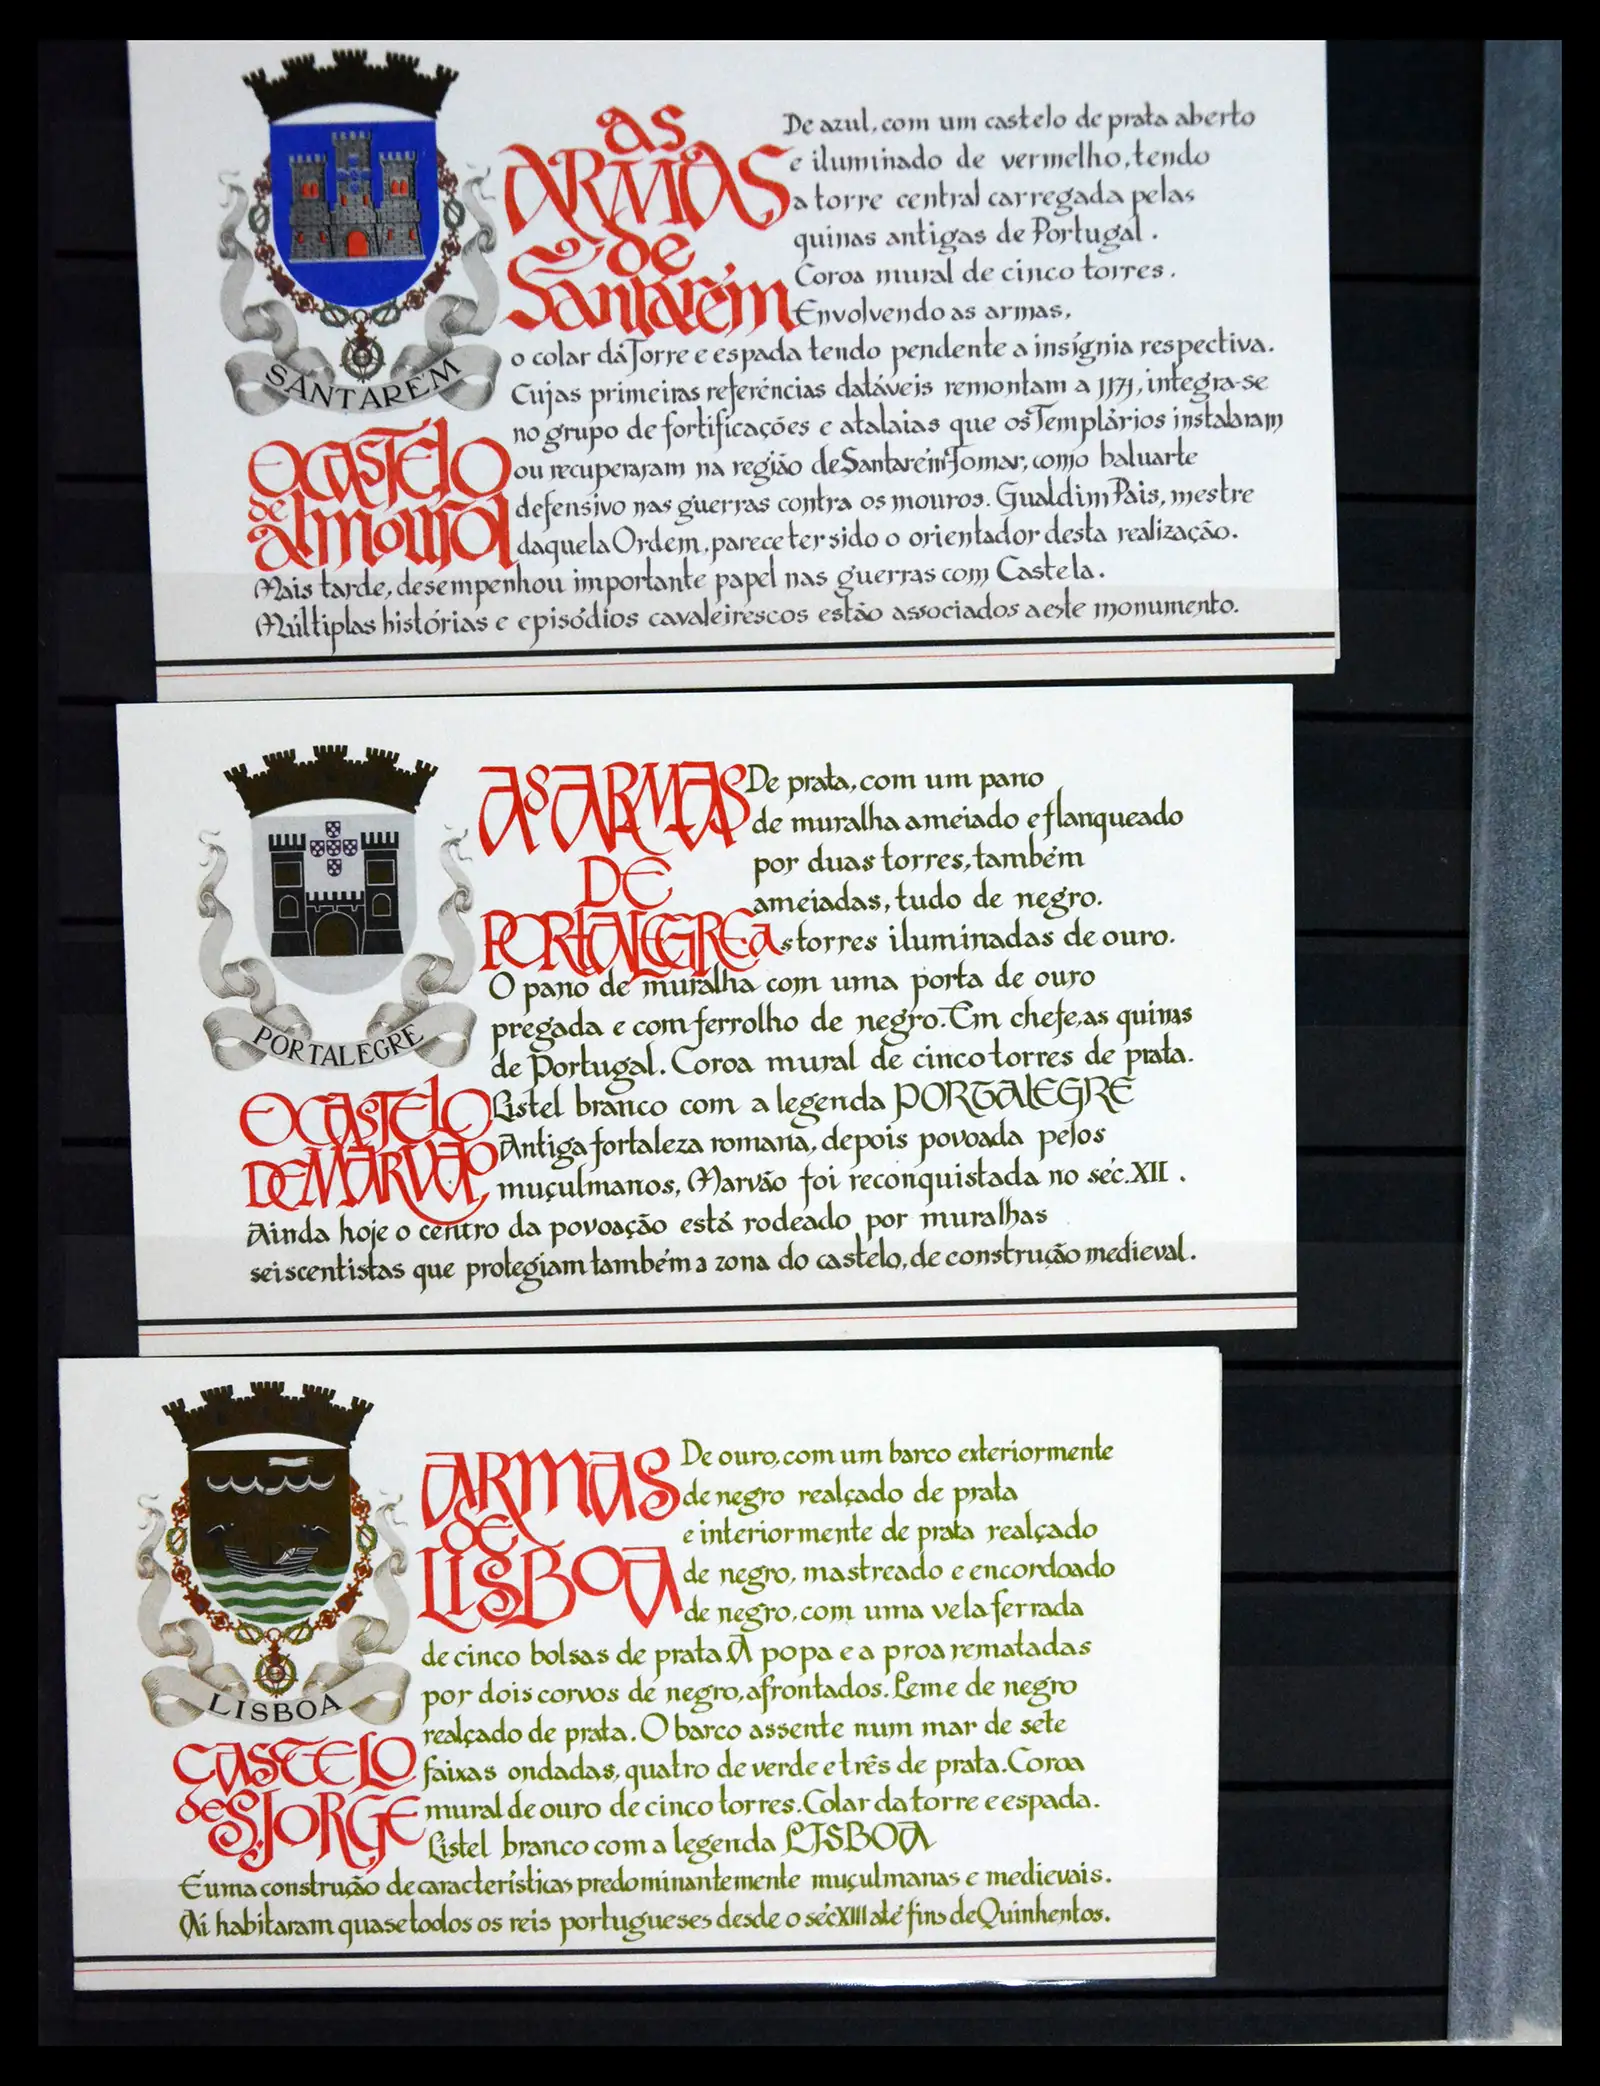 as
ARMAS
de
Santarém
De azul, com um castelo de prata aberto
e iluminado de vermelho, tendo
a torre central carregada pelas
quinas antigas de Portugal.
Coroa mural de cinco torres.
Envolvendo as armas,
o colar da Torre e espada tendo pendente a insígnia respectiva.
SANTARÉM
O CASTELO
de
almourol
Cujas primeiras referências datáveis remontam a 1171, integra-se
no grupo de fortificações e atalaias que os Templários instalaram
ou recuperaram na região de Santarém-Tomar, como baluarte
defensivo nas guerras contra os mouros. Gualdim Pais, mestre
daquela Ordem, parece ter sido o orientador desta realização.
Mais tarde, desempenhou importante papel nas guerras com Castela.
Múltiplas histórias e episódios cavaleirescos estão associados a este monumento.
AS ARMAS
DE
PORTALEGRE
De prata, com um pano
de muralha ameiado e flanqueado
por duas torres, também
ameiadas, tudo de negro.
as torres iluminadas de ouro.
O pano de muralha com uma porta de ouro
pregada e com ferrolho de negro. Em chefe, as quinas
de Portugal. Coroa mural de cinco torres de prata.
Listel branco com a legenda PORTALEGRE
PORTALEGRE
O CASTELO
DE MARVÃO
Antiga fortaleza romana, depois povoada pelos
muçulmanos, Marvão foi reconquistada no séc. XII.
Ainda hoje o centro da povoação está rodeado por muralhas
seiscentistas que protegiam também a zona do castelo, de construção medieval.
ARMAS
DE
LISBOA
De ouro, com um barco exteriormente
de negro realçado de prata
e interiormente de prata realçado
de negro, mastreado e encordoado
de negro, com uma vela ferrada
de cinco bolsas de prata. A popa e a proa rematadas
por dois corvos de negro, afrontados. Leme de negro
realçado de prata. O barco assente num mar de sete
faixas ondadas, quatro de verde e três de prata. Coroa
mural de ouro de cinco torres. Colar da torre e espada.
Listel branco com a legenda LISBOA
LISBOA
CASTELO
de S. JORGE
É uma construção de características predominantemente muçulmanas e medievais.
Aí habitaram quase todos os reis portugueses desde o séc XIII até fins de Quinhentos.